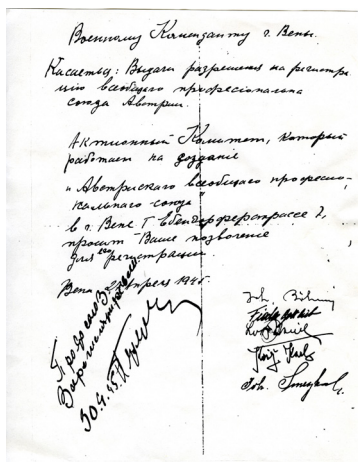 Военному Коменданту г. Вены.
Касается: Выдачи разрешения на регистра-
цию всеобщего професионална
союза Австрии.
Актионный Комитет, который
работает на создание
и Австрискаго всеобщаго професио-
нальнаго союза
в г. Вене I Ебендорферстрассе 7,
просит Ваше позволение
для его регистрации.
Вена, апреля 1945.
30.4.45.
Joh. Böhm
Joh.